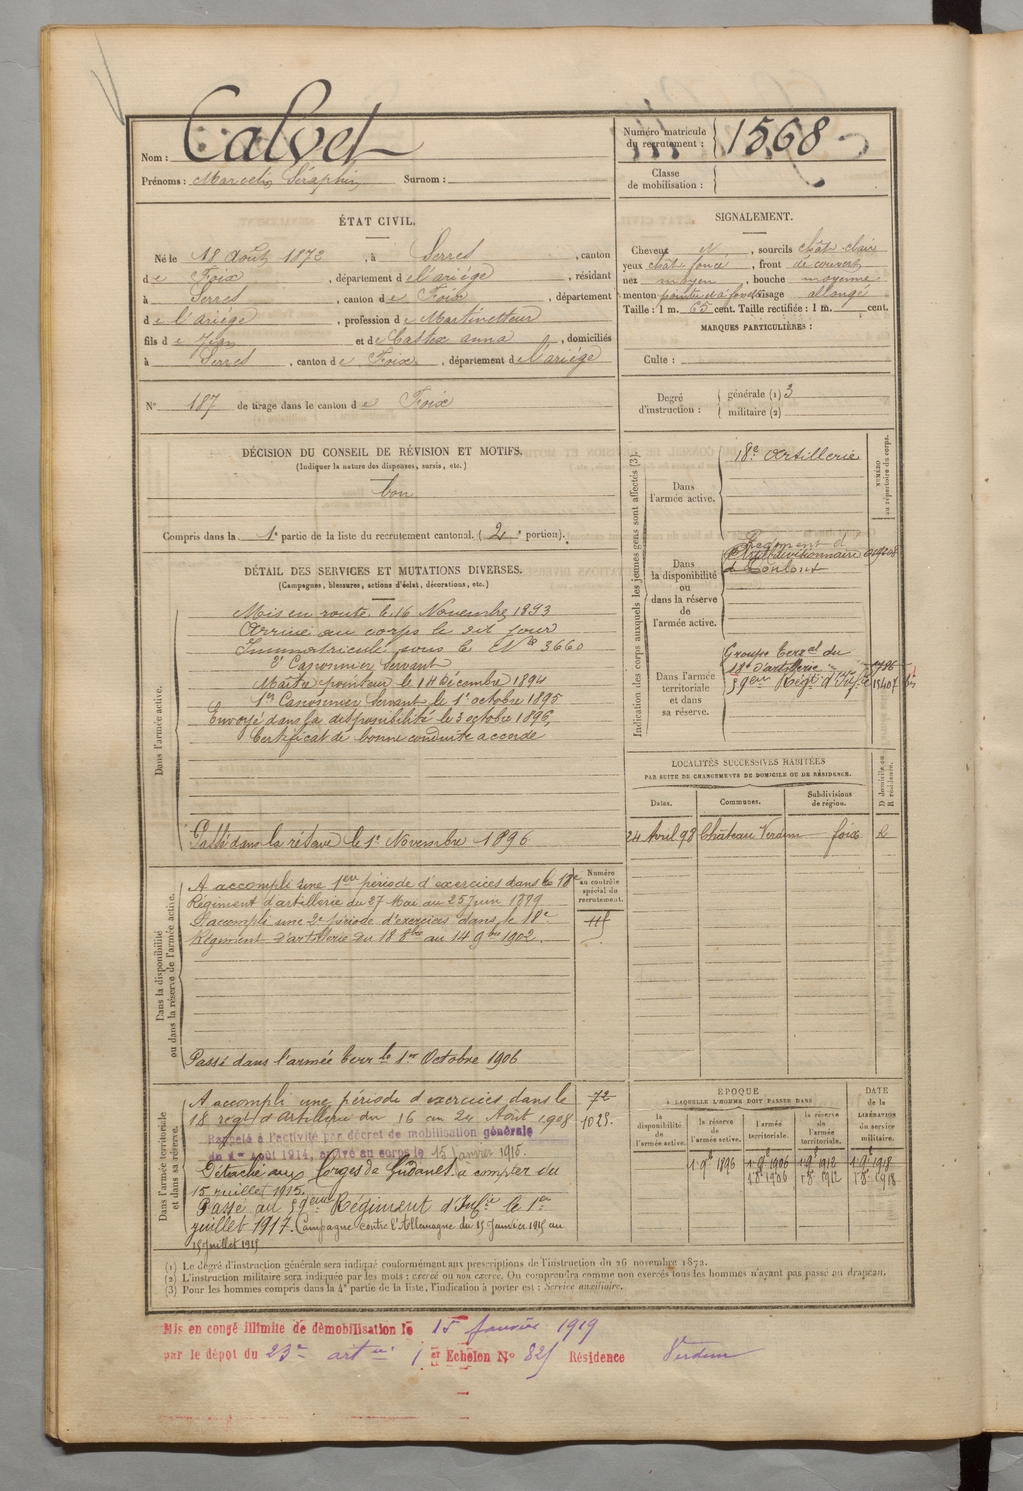 Nom : Calvet
Numéro matricule du recrutement : 1568
Prénoms : Marcelin Séraphin Surnom :
Classe de mobilisation :
ÉTAT CIVIL.
Né le 18 Août 1872, à Serres, canton
de Foix, département de l'ariège, résidant
à Serres, canton de Foix, département
de l'ariège, profession de Martinetteur
fils de Jean et de Castex anna, domiciliés
à Serres, canton de Foix, département de l'ariège
SIGNALEMENT.
Cheveux N, sourcils chât. claire
yeux chât. foncé, front découvert
nez moyen, bouche moyenne
menton pointu et à fossette visage allongé
Taille : 1 m. 65 cent. Taille rectifiée : 1 m. cent.
MARQUES PARTICULIÈRES :
Culte :
N° 187 de tirage dans le canton de Foix
Degré d'instruction : générale (1) 3
militaire (2)
DÉCISION DU CONSEIL DE RÉVISION ET MOTIFS.
(Indiquer la nature des dispenses, sursis, etc.)
bon
Compris dans la 1e partie de la liste du recrutement cantonal. (2e portion).
DÉTAIL DES SERVICES ET MUTATIONS DIVERSES.
(Campagnes, blessures, actions d'éclat, décorations, etc.)
Dans l'armée active.
Mis en route le 16 Novembre 1893
Arrivé au corps le dit jour
Immatriculé sous le No 3660
2e Canonnier Servant
Maître pointeur le 14 Décembre 1894
1er Canonnier Servant le 1er octobre 1895
Envoyé dans la disponibilité le 3 octobre 1896
Certificat de bonne conduite accordé
Passé dans la réserve le 1er Novembre 1896
Dans la disponibilité
ou dans la réserve de l'armée active.
A accompli une 1ère période d'exercices dans le 18e
Régiment d'artillerie du 27 Mai au 25 Juin 1899
A accompli une 2e période d'exercices dans le 18e
Régiment d'artillerie du 18 8bre au 14 9bre 1902.
Passé dans l'armée terr le 1er Octobre 1906
Numéro
au contrôle
spécial du
recrutement.
Dans l'armée territoriale
et dans sa réserve.
A accompli une période d'exercices dans le 72
18 régt d'Artillerie du 16 au 24 Août 1908 1025.
Rappelé à l'activité par décret de mobilisation générale
du 1er Août 1914, arrivé au corps le 15 Janvier 1915.
Détaché aux Forges de Gudanes à compter du
15 juillet 1915.
Passé au 59eme Régiment d'Infie le 1er
juillet 1917. Campagne contre l'Allemagne du 15 Janvier 1915 au
15 Juillet 1915
Indication des corps auxquels les jeunes gens sont affectés (3).
NUMÉRO
au répertoire du corps.
Dans
l'armée active.
18e Artillerie
Dans
la disponibilité
ou
dans la réserve
de
l'armée active.
Régiment d'
Dans l'armée
territoriale
et dans
sa réserve.
Groupe terral du
18e d'artillerie 1796
59eme Régt d'Infie 15407 bis
LOCALITÉS SUCCESSIVES HABITÉES
PAR SUITE DE CHANGEMENTS DE DOMICILE OU DE RÉSIDENCE.
Dates. Communes. Subdivisions de région. D domicile ou R résidence.
24 Avril 98 Château Verdun foix R
ÉPOQUE
A LAQUELLE L'HOMME DOIT PASSER DANS
DATE
de la
LIBÉRATION
du service
militaire.
la disponibilité de l'armée active.
la réserve de l'armée active.
l'armée territoriale.
la réserve de l'armée territoriale.
1 9e 1896 1 9e 1906 1 9e 1912 1 9e 1918
1 8e 1906 1 8e 1912 1 8e 1918
(1) Le degré d'instruction générale sera indiqué conformément aux prescriptions de l'instruction du 26 novembre 1872.
(2) L'instruction militaire sera indiquée par les mots : exercé ou non exercé. On comprendra comme non exercés tous les hommes n'ayant pas passé au drapeau.
(3) Pour les hommes compris dans la 4e partie de la liste, l'indication à porter est : Service auxiliaire.
Mis en congé illimité de démobilisation le 15 Janvier 1919
par le dépôt du 23e artie 1er Echelon No 825 Résidence Verdun